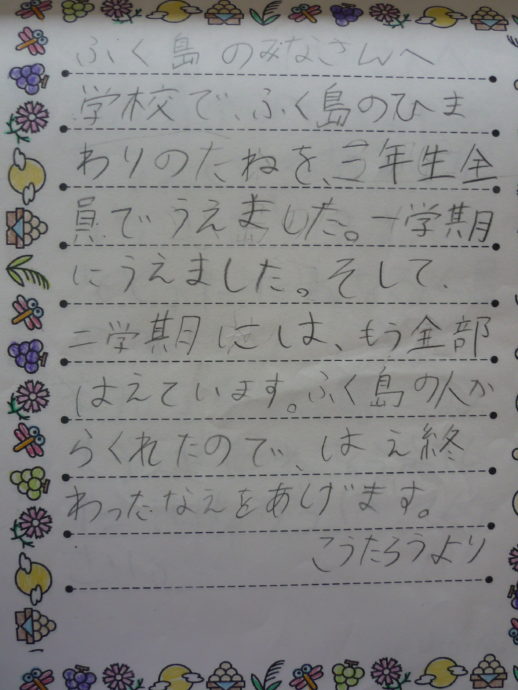 ふく島のみなさんへ
学校で、ふく島のひま
わりのたねを、三年生全
員でうえました。一学期
にうえました。そして、
二学期には、もう全部
はえています。ふく島の人か
らくれたので、はえ終
わったなえをあげます。
こうたろうより